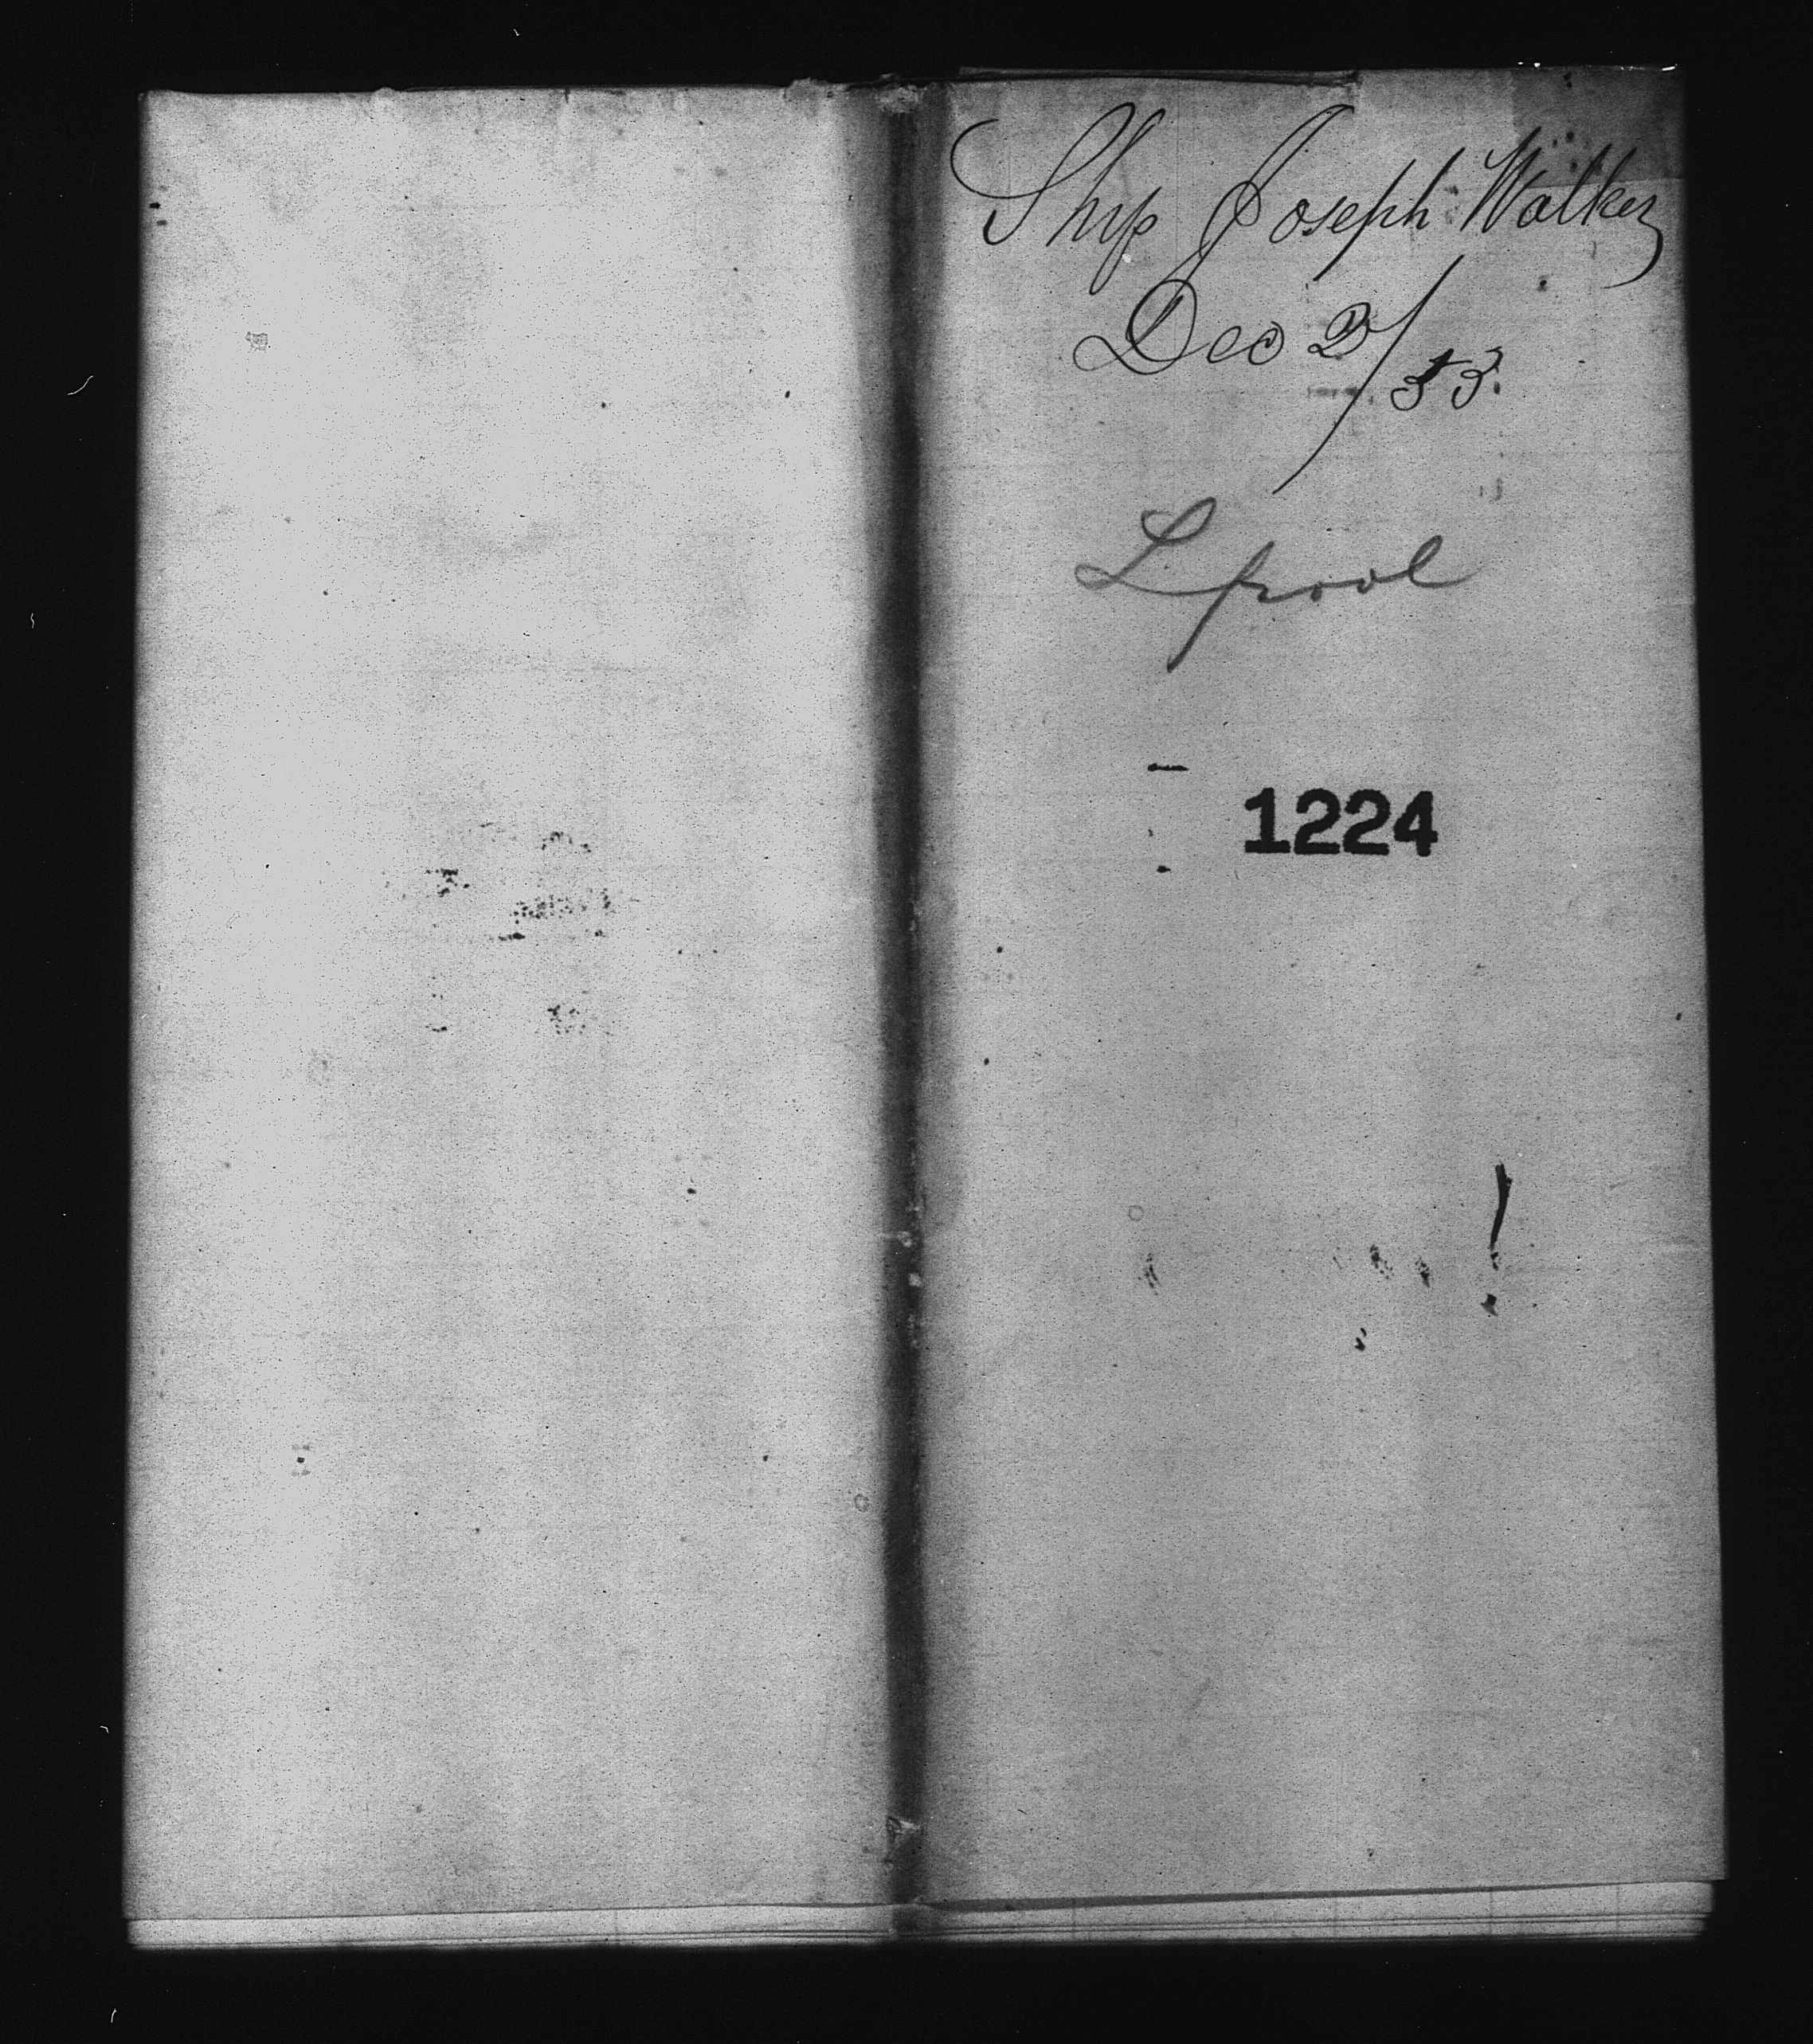 Ship Joseph Walker
Dec 2/53
Lpool
1224